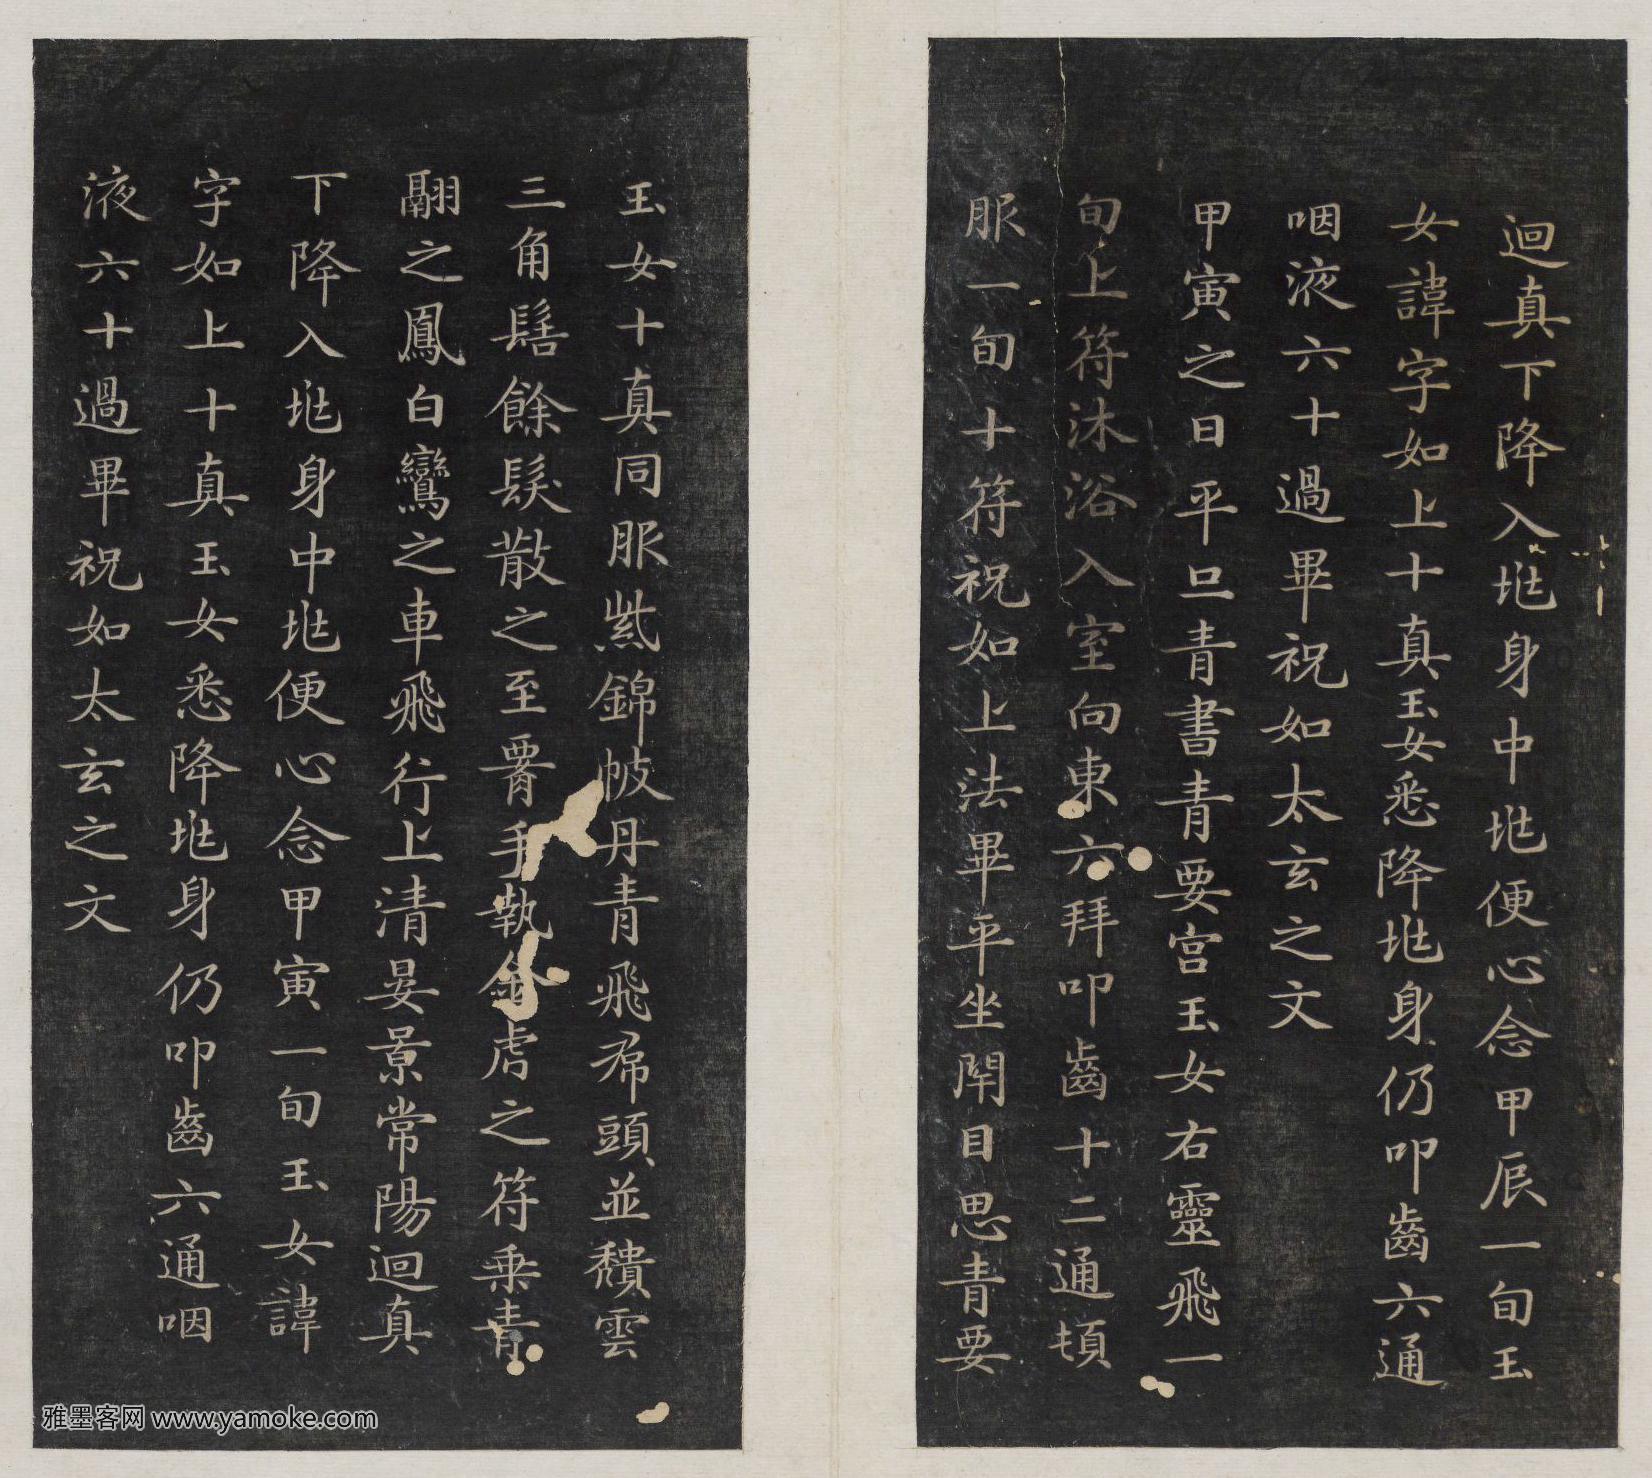 迴真下降入兆身中兆便心念甲辰一旬玉
女諱字如上十真玉女悉降兆身仍叩齒六通
咽液六十過畢祝如太玄之文
甲寅之日平旦青書青要宮玉女右靈飛一
旬上符沐浴入室向東六拜叩齒十二通頓
服一旬十符祝如上法畢平坐閉目思青要
玉女十真同服紫錦帔丹青飛帬頭並穨雲
三角髻餘髮散之至署手執金虎之符乗青
翮之鳳白鸞之車飛行上清晏景常陽迴真
下降入兆身中兆便心念甲寅一旬玉女諱
字如上十真玉女悉降兆身仍叩齒六通咽
液六十過畢祝如太玄之文
雅墨客网 www.yamoke.com